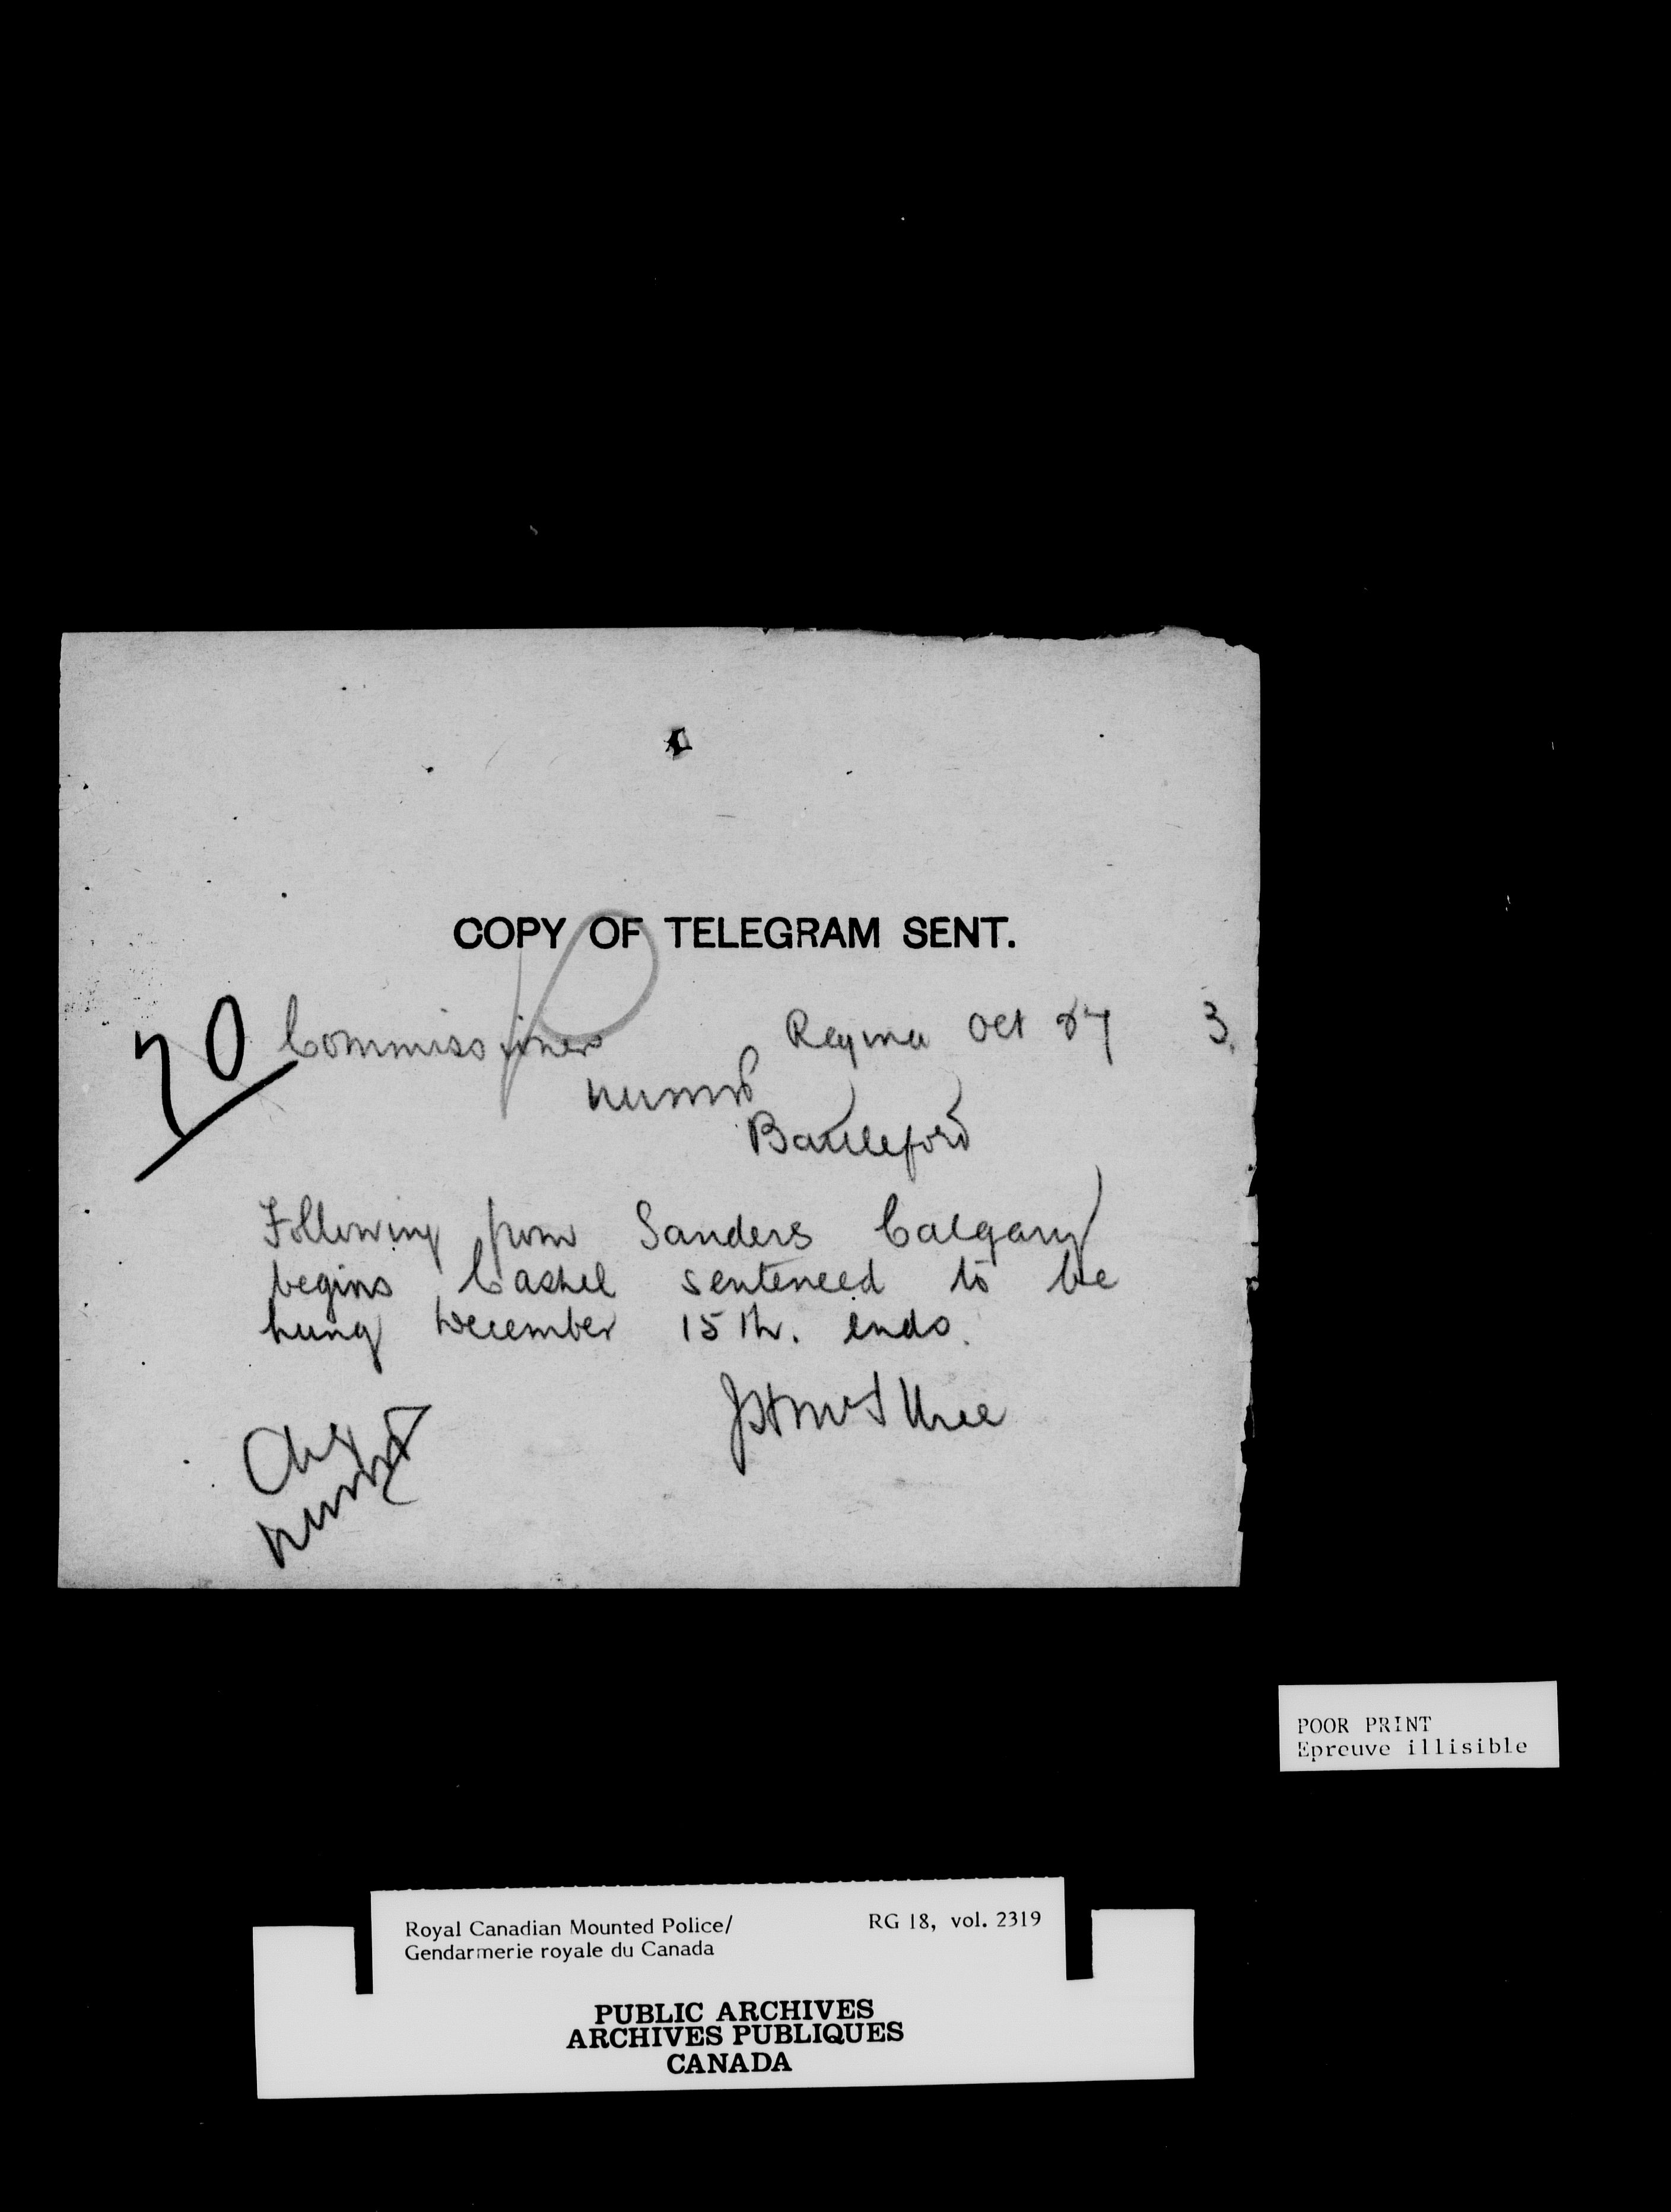 COPY OF TELEGRAM SENT.
70 Commissioner Regina Oct 27 3.
NWMP
Battleford
Following from Sanders Calgary
begins Cashel sentenced to be
hung December 15th. ends.
NWMP
POOR PRINT
Epreuve illisible
Royal Canadian Mounted Police/ RG 18, vol. 2319
Gendarmerie royale du Canada
PUBLIC ARCHIVES
ARCHIVES PUBLIQUES
CANADA